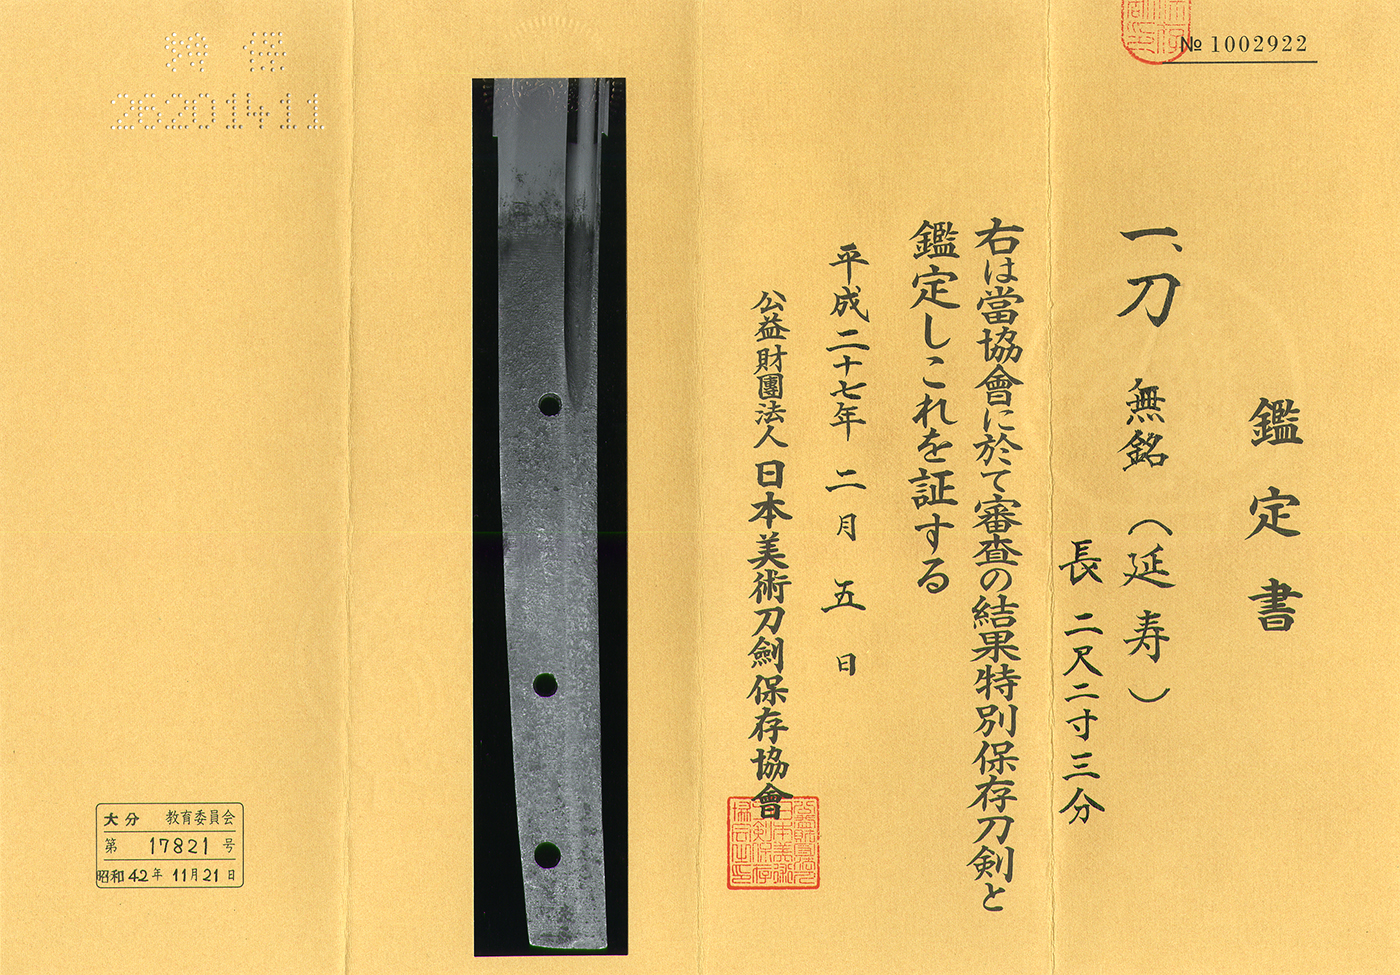 № 1002922
鑑定書
一、刀 無銘（延寿）
長 二尺二寸三分
右は當協會に於て審査の結果特別保存刀剣と
鑑定しこれを証する
平成二十七年 二月 五日
公益財團法人 日本美術刀劍保存協會
26201411
大分 教育委員会
第 17821 号
昭和42年 11月21日